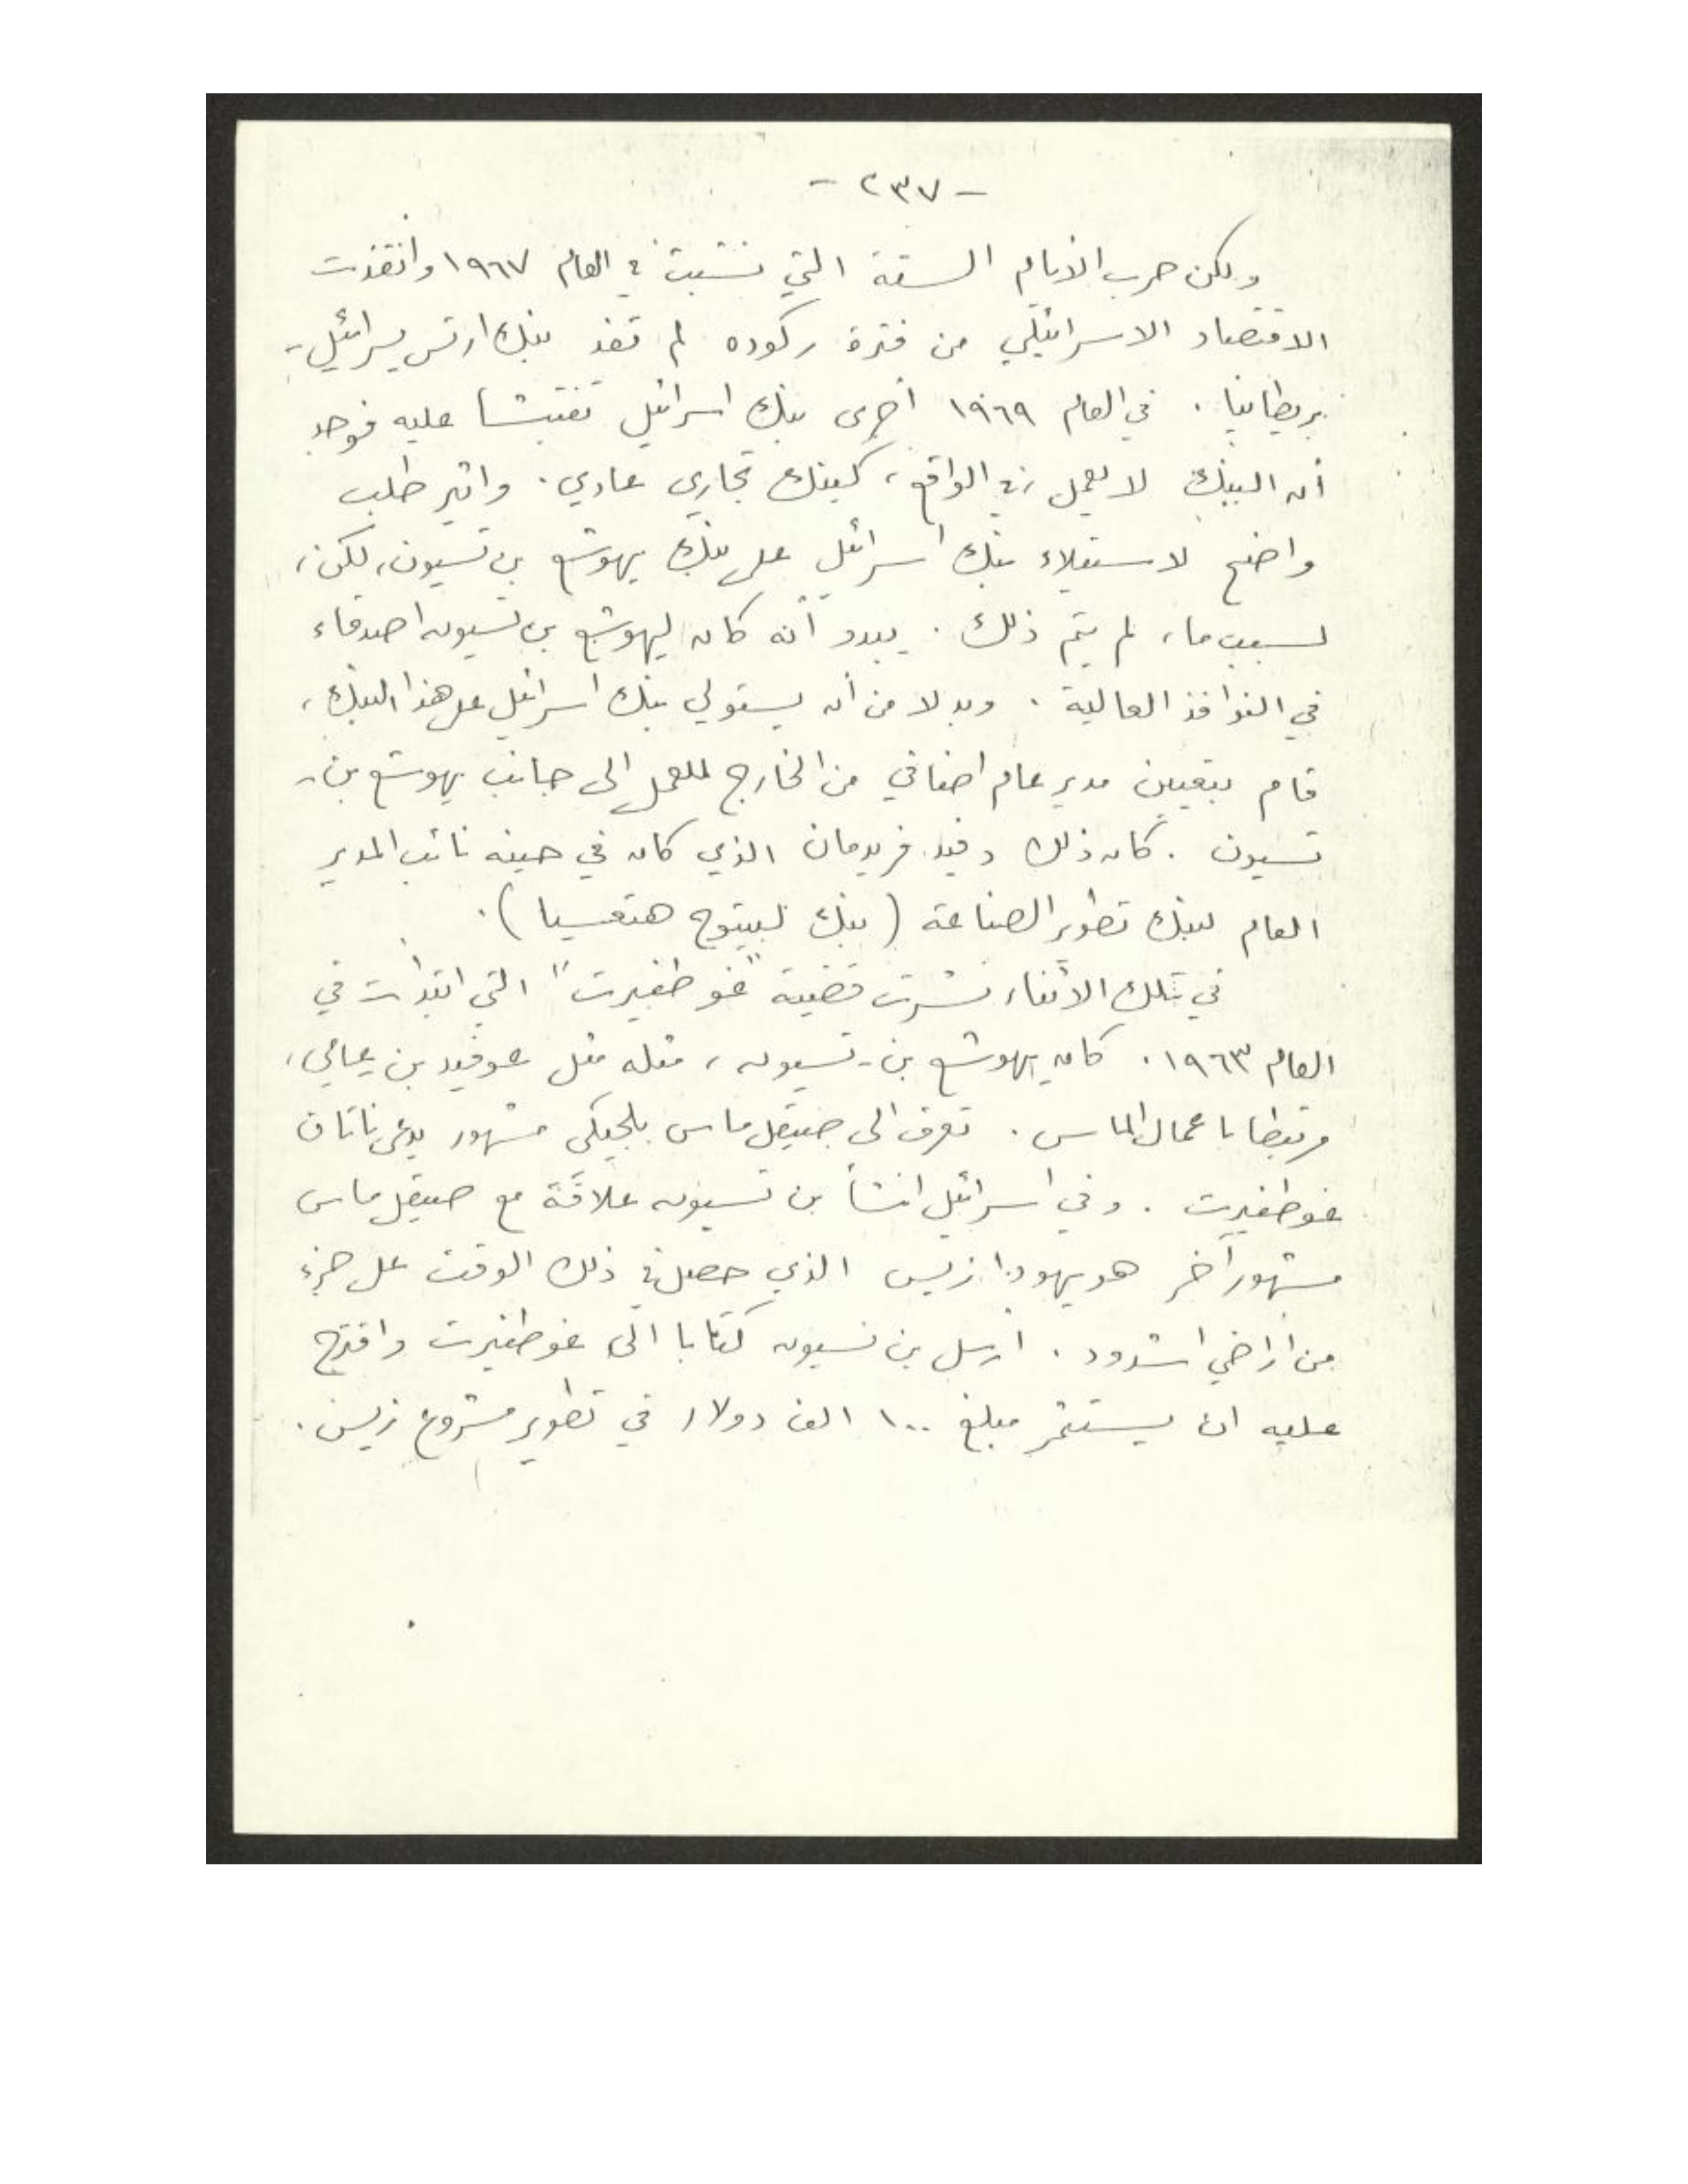 - ٢٣٧ -
ولكن حرب الايام الستة التي نشبت في العام ١٩٦٧ وأنقذت
الاقتصاد الاسرائيلي من فترة ركوده لم تفد بنك ارتس يسرائيل -
بريطانيا . في العام ١٩٦٩ أجرى بنك اسرائيل تفتيشا عليه فوجد
أن البنك لا يعمل ، في الواقع ، كبنك تجاري عادي . واثير طلب
واضح لاستيلاء بنك اسرائيل على بنك يهوشع بن تسيون ، لكن ،
لسبب ما ، لم يتم ذلك . يبدو أنه كان ليهوشع بن تسيون اصدقاء
في النوافذ العالية . وبدلا من أن يستولي بنك اسرائيل على هذا البنك ،
قام بتعيين مدير عام اضافي من الخارج للعمل الى جانب يهوشع بن -
تسيون . كان ذلك دفيد فريدمان الذي كان في حينه نائب المدير
العام لبنك تطوير الصناعة ( بنك لبيتوح هتعسيا ) .
في تلك الأثناء نشرت قضية "غوطفيرت" التي ابتدأت في
العام ١٩٦٣ . كان يهوشع بن - تسيون ، مثله مثل عوفيد بن عامي ،
مرتبطا باعمال الماس . تعرف الى صيقل ماس بلجيكي مشهور يدعى ناتان
غوطفيرت . وفي اسرائيل انشأ بن تسيون علاقة مع صيقل ماس
مشهور آخر هو يهودا زيس الذي حصل في ذلك الوقت على جزء
من اراضي اشدود . أرسل بن تسيون كتابا الى غوطفيرت واقترح
عليه ان يستثمر مبلغ ١٠٠ الف دولار في تطوير مشروع زيس .